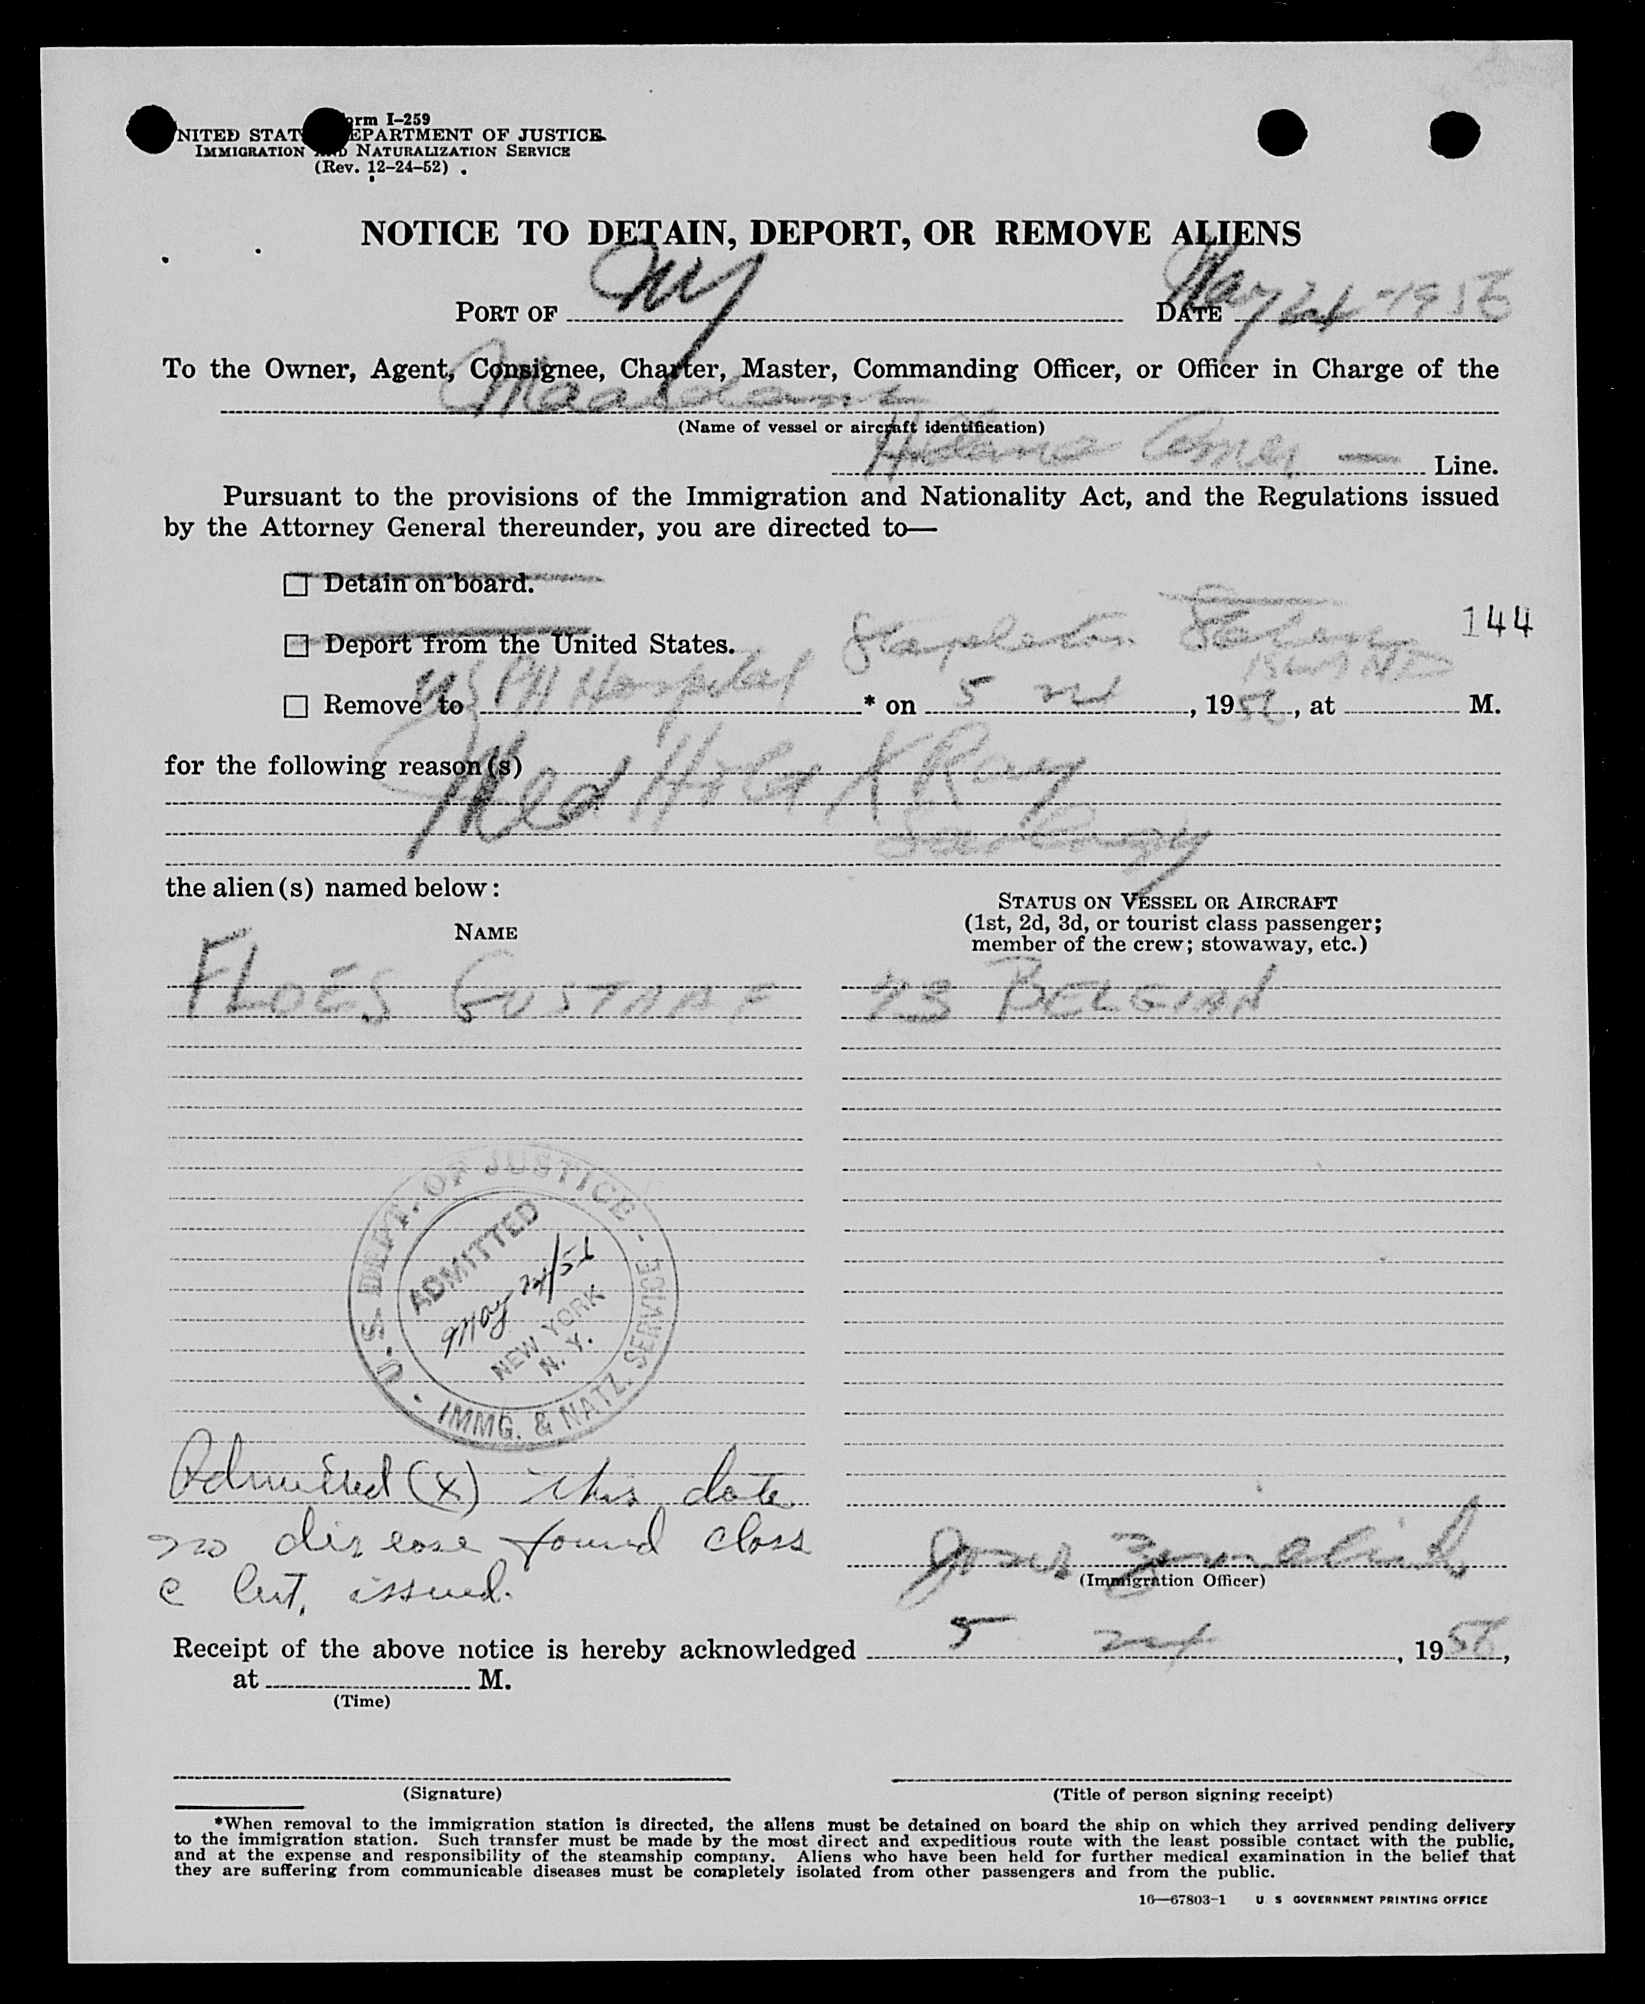 Form I-259
UNITED STATES DEPARTMENT OF JUSTICE
IMMIGRATION AND NATURALIZATION SERVICE
(Rev. 12-24-52)
NOTICE TO DETAIN, DEPORT, OR REMOVE ALIENS
PORT OF NY DATE May 24 - 1956
To the Owner, Agent, Consignee, Charter, Master, Commanding Officer, or Officer in Charge of the
Maasdam
(Name of vessel or aircraft identification)
Holland Amer — Line.
Pursuant to the provisions of the Immigration and Nationality Act, and the Regulations issued
by the Attorney General thereunder, you are directed to—
☐ Detain on board.
☐ Deport from the United States. Stapleton Staten 144
ISLAND
☐ Remove to US PH Hospital * on 5 24, 1956, at M.
for the following reason(s) Med Hold X Ray
the alien(s) named below:
STATUS ON VESSEL OR AIRCRAFT
(1st, 2d, 3d, or tourist class passenger;
member of the crew; stowaway, etc.)
NAME
FLOËS GUSTAAF 23 BELGIAN
U.S. DEPT. OF JUSTICE - IMMG. & NATZ. SERVICE
ADMITTED
May 24/56
NEW YORK
N. Y.
Admitted (x) this date
no disease found class
c Cert. issued.
(Immigration Officer)
Receipt of the above notice is hereby acknowledged 5 24, 1956,
at M.
(Time)
(Signature) (Title of person signing receipt)
*When removal to the immigration station is directed, the aliens must be detained on board the ship on which they arrived pending delivery
to the immigration station. Such transfer must be made by the most direct and expeditious route with the least possible contact with the public,
and at the expense and responsibility of the steamship company. Aliens who have been held for further medical examination in the belief that
they are suffering from communicable diseases must be completely isolated from other passengers and from the public.
16—67803-1 U S GOVERNMENT PRINTING OFFICE